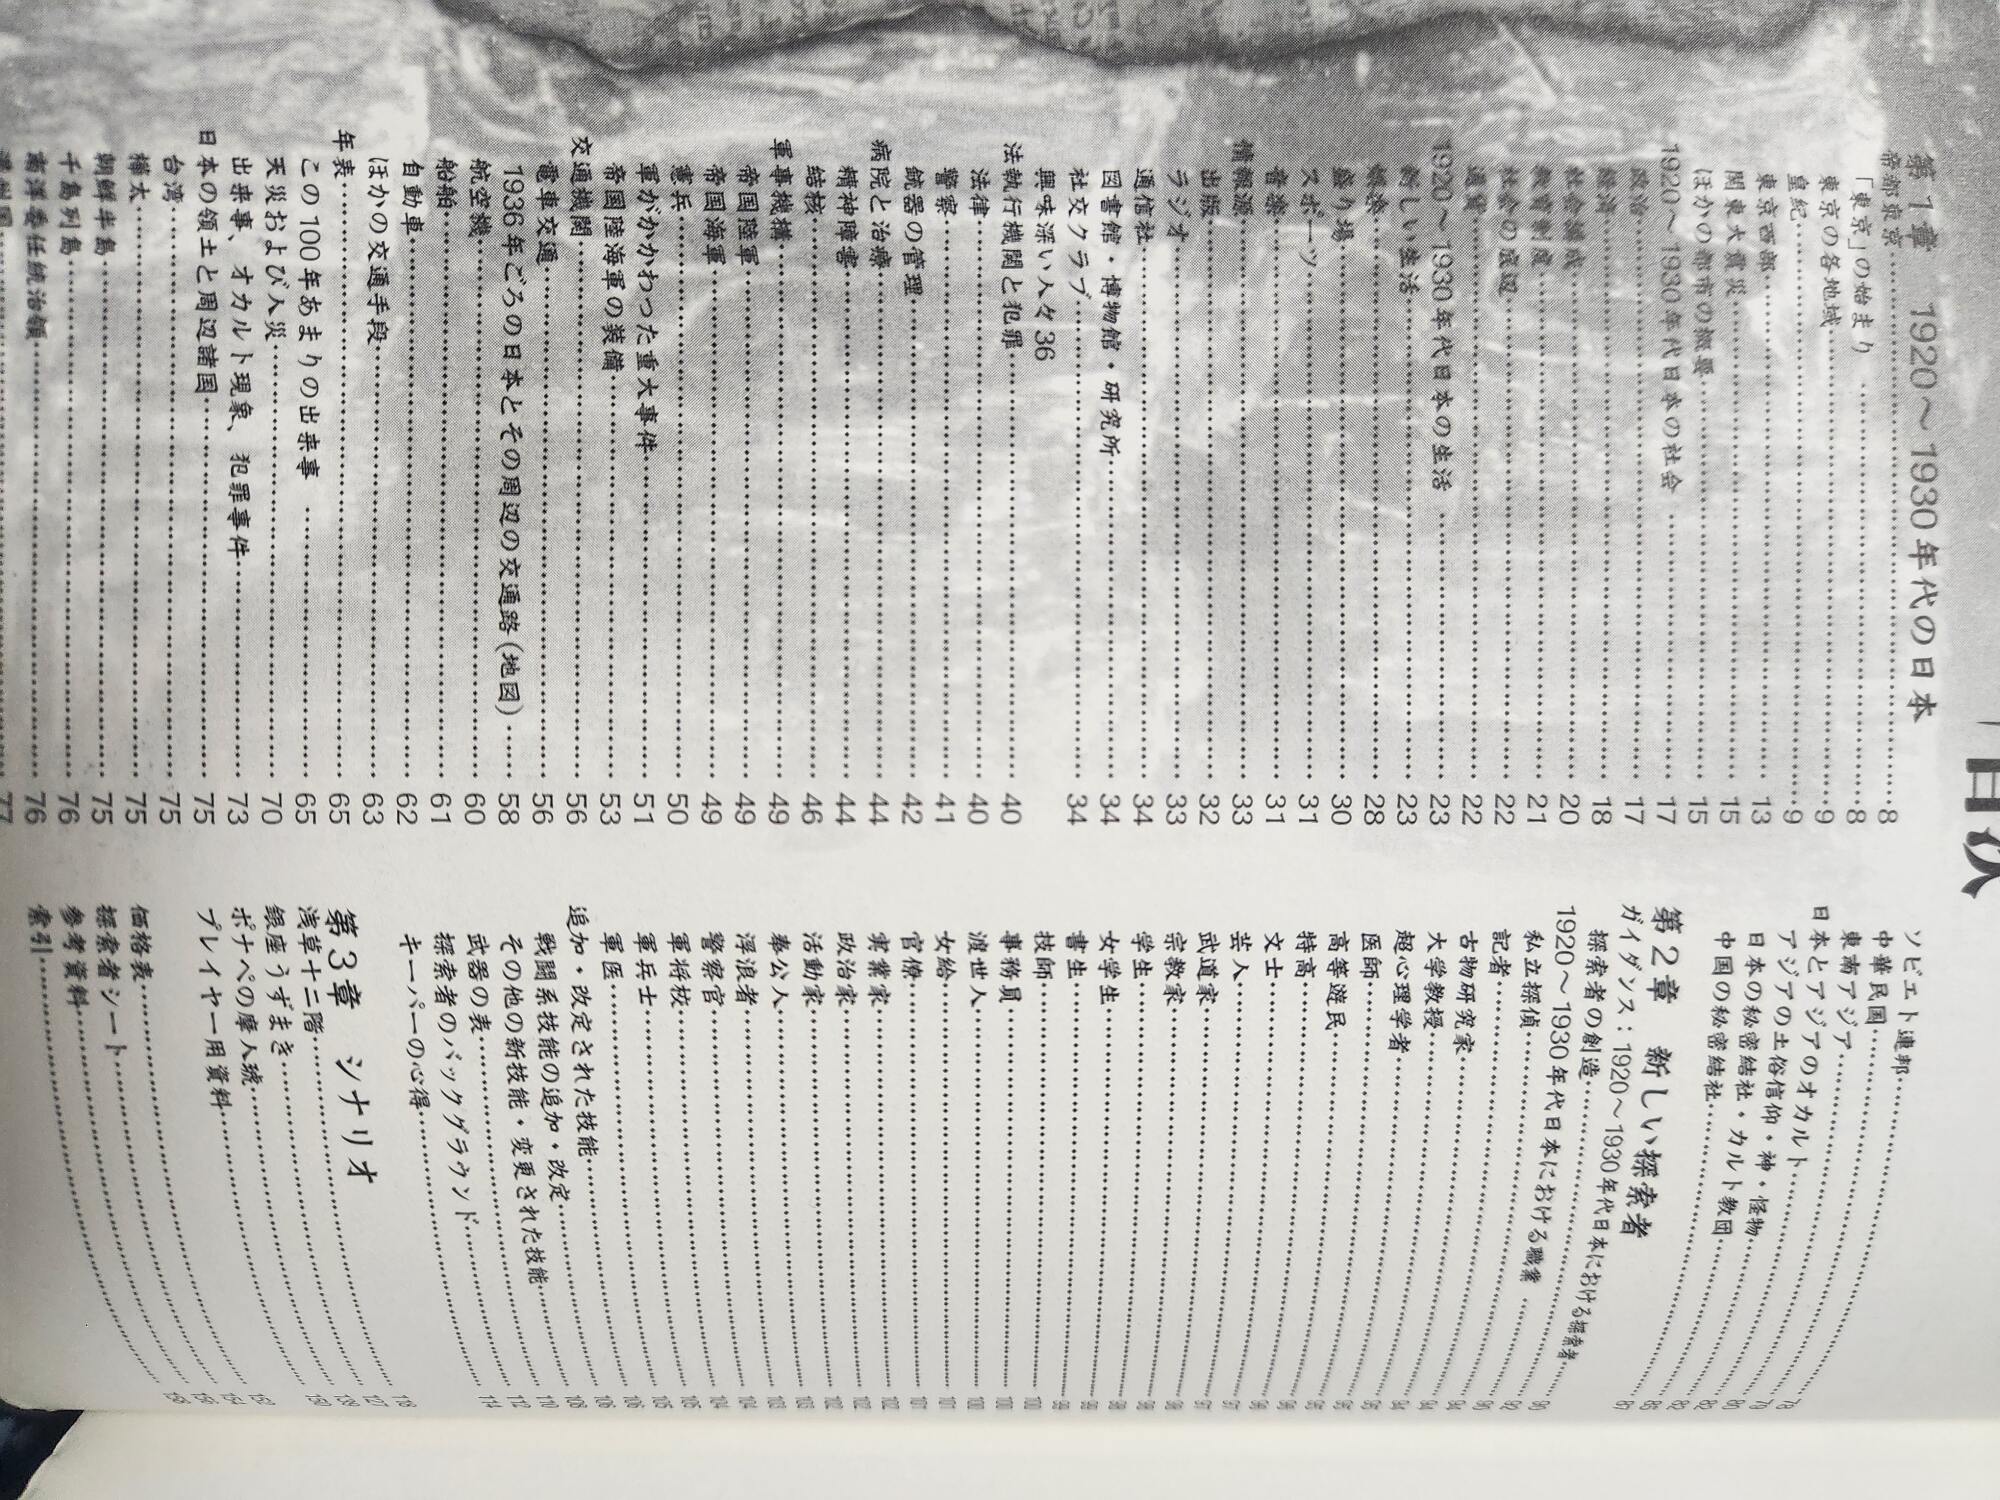 目次
第1章　1920～1930年代の日本
帝都東京……8
「東京」の始まり……8
東京の各地域……9
皇紀……9
東京西部……13
関東大震災……15
ほかの都市の概要……15
1920～1930年代日本の社会……17
政治……17
経済……18
社会構成……20
教育制度……21
社会の底辺……22
通貨……22
1920～1930年代日本の生活……23
新しい生活……23
娯楽……28
盛り場……30
スポーツ……31
音楽……31
情報源……33
出版……32
ラジオ……33
通信社……34
図書館・博物館・研究所……34
社交クラブ……34
興味深い人々36
法執行機関と犯罪……40
法律……40
警察……41
銃器の管理……42
病院と治療……44
精神障害……44
結核……46
軍事機構……49
帝国陸軍……49
帝国海軍……49
憲兵……50
軍がかかわった重大事件……51
帝国陸海軍の装備……53
交通機関……56
電車交通……56
1936年ごろの日本とその周辺の交通路(地図)……58
航空機……60
船舶……61
自動車……62
ほかの交通手段……63
年表……65
この100年あまりの出来事……65
天災および人災……70
出来事、オカルト現象、犯罪事件……73
日本の領土と周辺諸国……75
台湾……75
樺太……75
朝鮮半島……75
千島列島……76
南洋委任統治領……76
満州国……77
ソビエト連邦……78
中華民国……79
東南アジア……79
日本とアジアのオカルト……80
アジアの土俗信仰・神・怪物……82
日本の秘密結社・カルト教団……82
中国の秘密結社……85
第2章　新しい探索者
ガイダンス：1920～1930年代日本における探索者……87
探索者の創造……90
1920～1930年代日本における職業……92
私立探偵
記者
古物研究家……94
大学教授……94
超心理学者……94
医師……95
高等遊民……95
特高
文士
芸人
武道家……97
宗教家……98
学生……98
女学生……99
書生……99
技師……100
事務員……100
渡世人……100
女給……101
官僚……101
実業家……102
政治家……102
活動家……103
奉公人……103
浮浪者……104
警察官……104
軍将校……105
軍兵士……105
軍医……106
追加・改定された技能……108
戦闘系技能の追加・改定……110
その他の新技能・変更された技能……112
武器の表……114
探索者のバックグラウンド
キーパーの心得……118
第3章　シナリオ
浅草十二階……127
銀座うずまき……139
ポナペの摩人琥……150
プレイヤー用資料
価格表……152
探索者シート……154
参考資料……156
索引……158